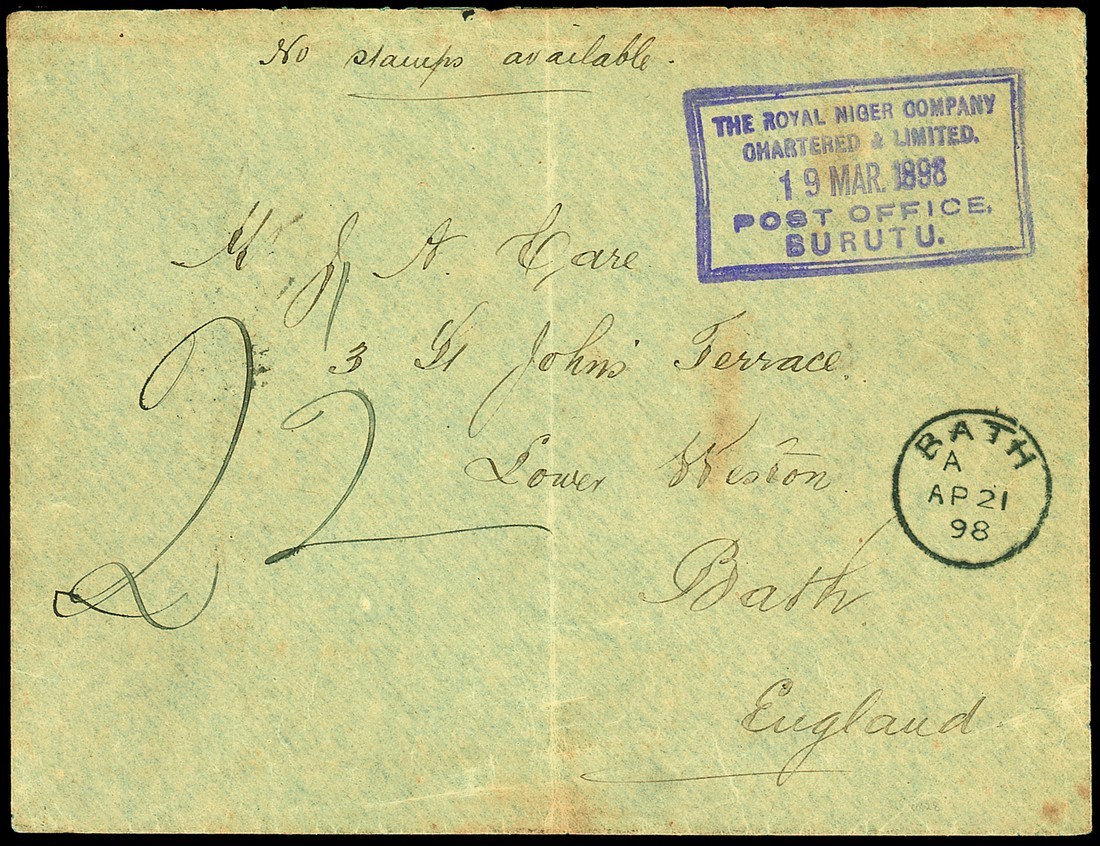 No stamps available.
THE ROYAL NIGER COMPANY
CHARTERED & LIMITED.
19 MAR. 1898
POST OFFICE,
BURUTU.
Mr J A. Hare
3 St John's Terrace.
22
Lower Weston
BATH
A
AP 21
98
Bath
England